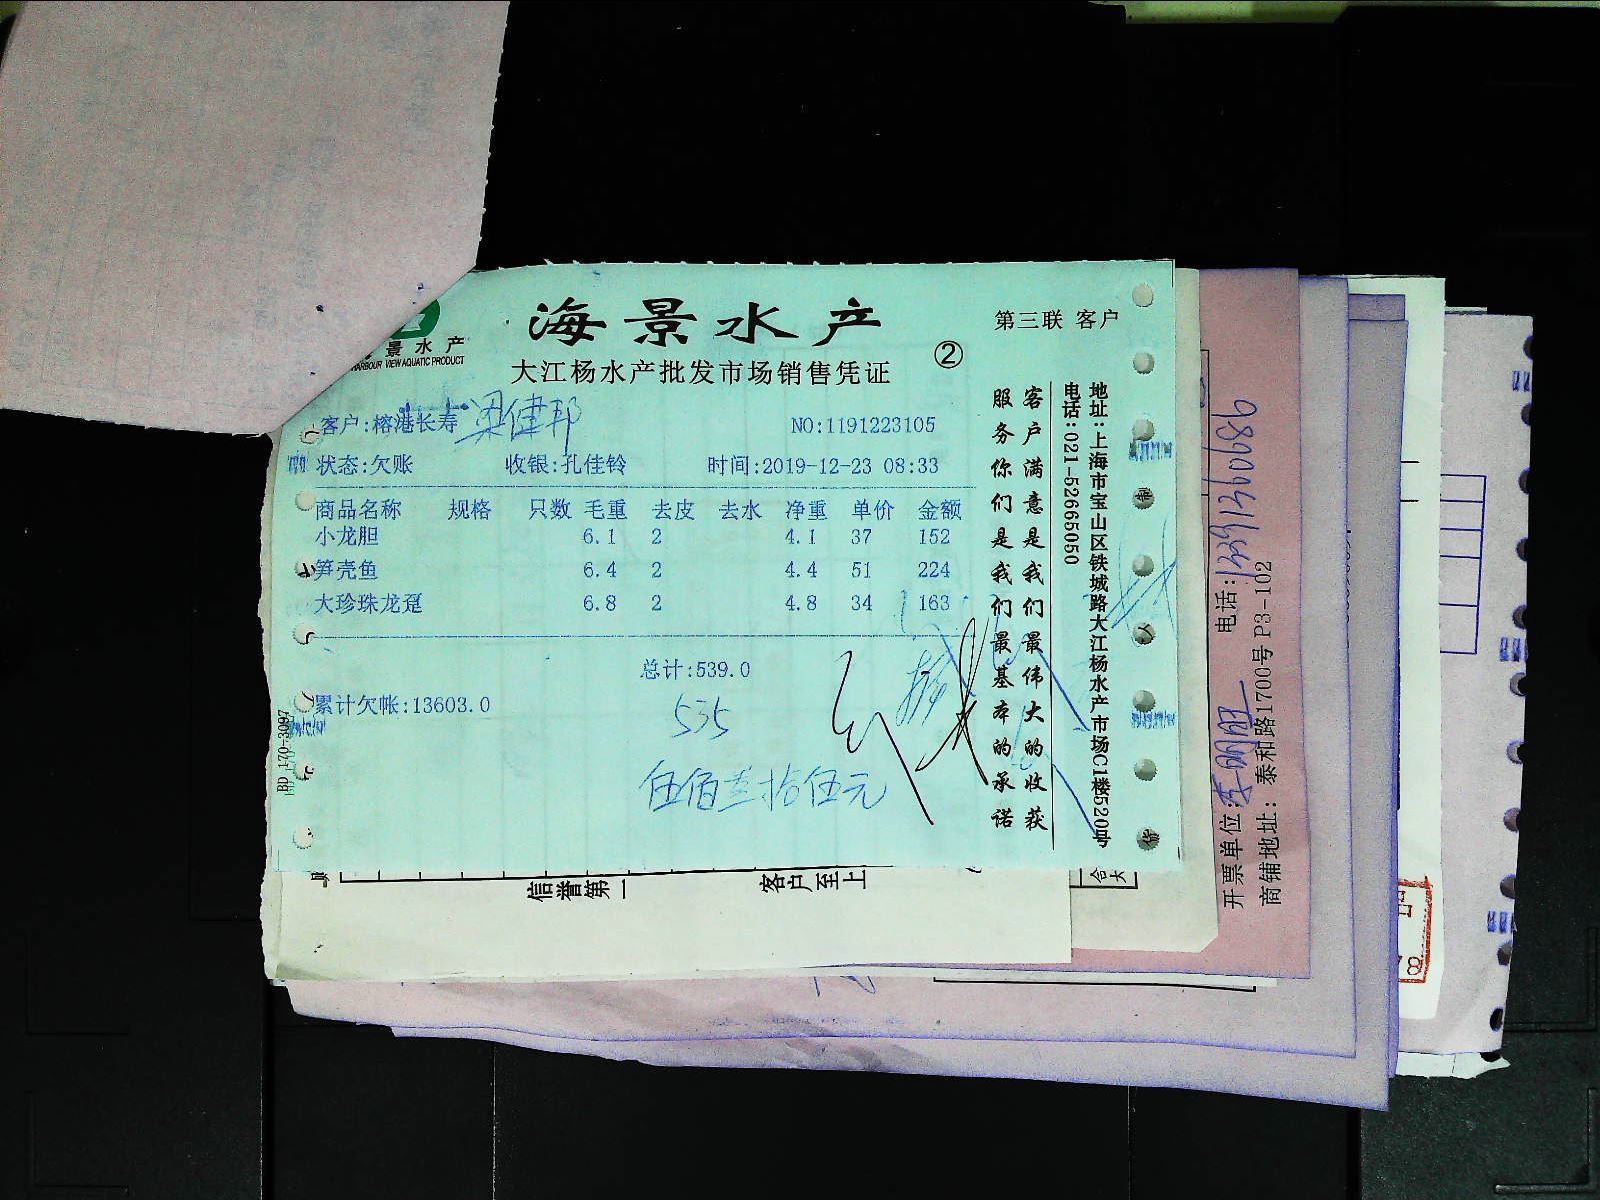 海景水产
第三联 客户
景水产
HARBOUR VIEW AQUATIC PRODUCT
大江杨水产批发市场销售凭证
②
客户:榕港长寿 梁健邦
NO:1191223105
状态:欠账 收银:孔佳铃 时间:2019-12-23 08:33
商品名称 规格 只数 毛重 去皮 去水 净重 单价 金额
小龙胆 6.1 2 4.1 37 152
笋壳鱼 6.4 2 4.4 51 224
大珍珠龙趸 6.8 2 4.8 34 163
总计:539.0
累计欠帐:13603.0
535
伍佰叁拾伍元
客户满意是我们最伟大的收获
服务你们是我们最基本的承诺
地址:上海市宝山区铁城路大江杨水产市场C1楼520号
电话:021-52665050
BD 170-3097
信誉第一
客户至上
开票单位:
电话:
商铺地址: 泰和路1700号 P3-102